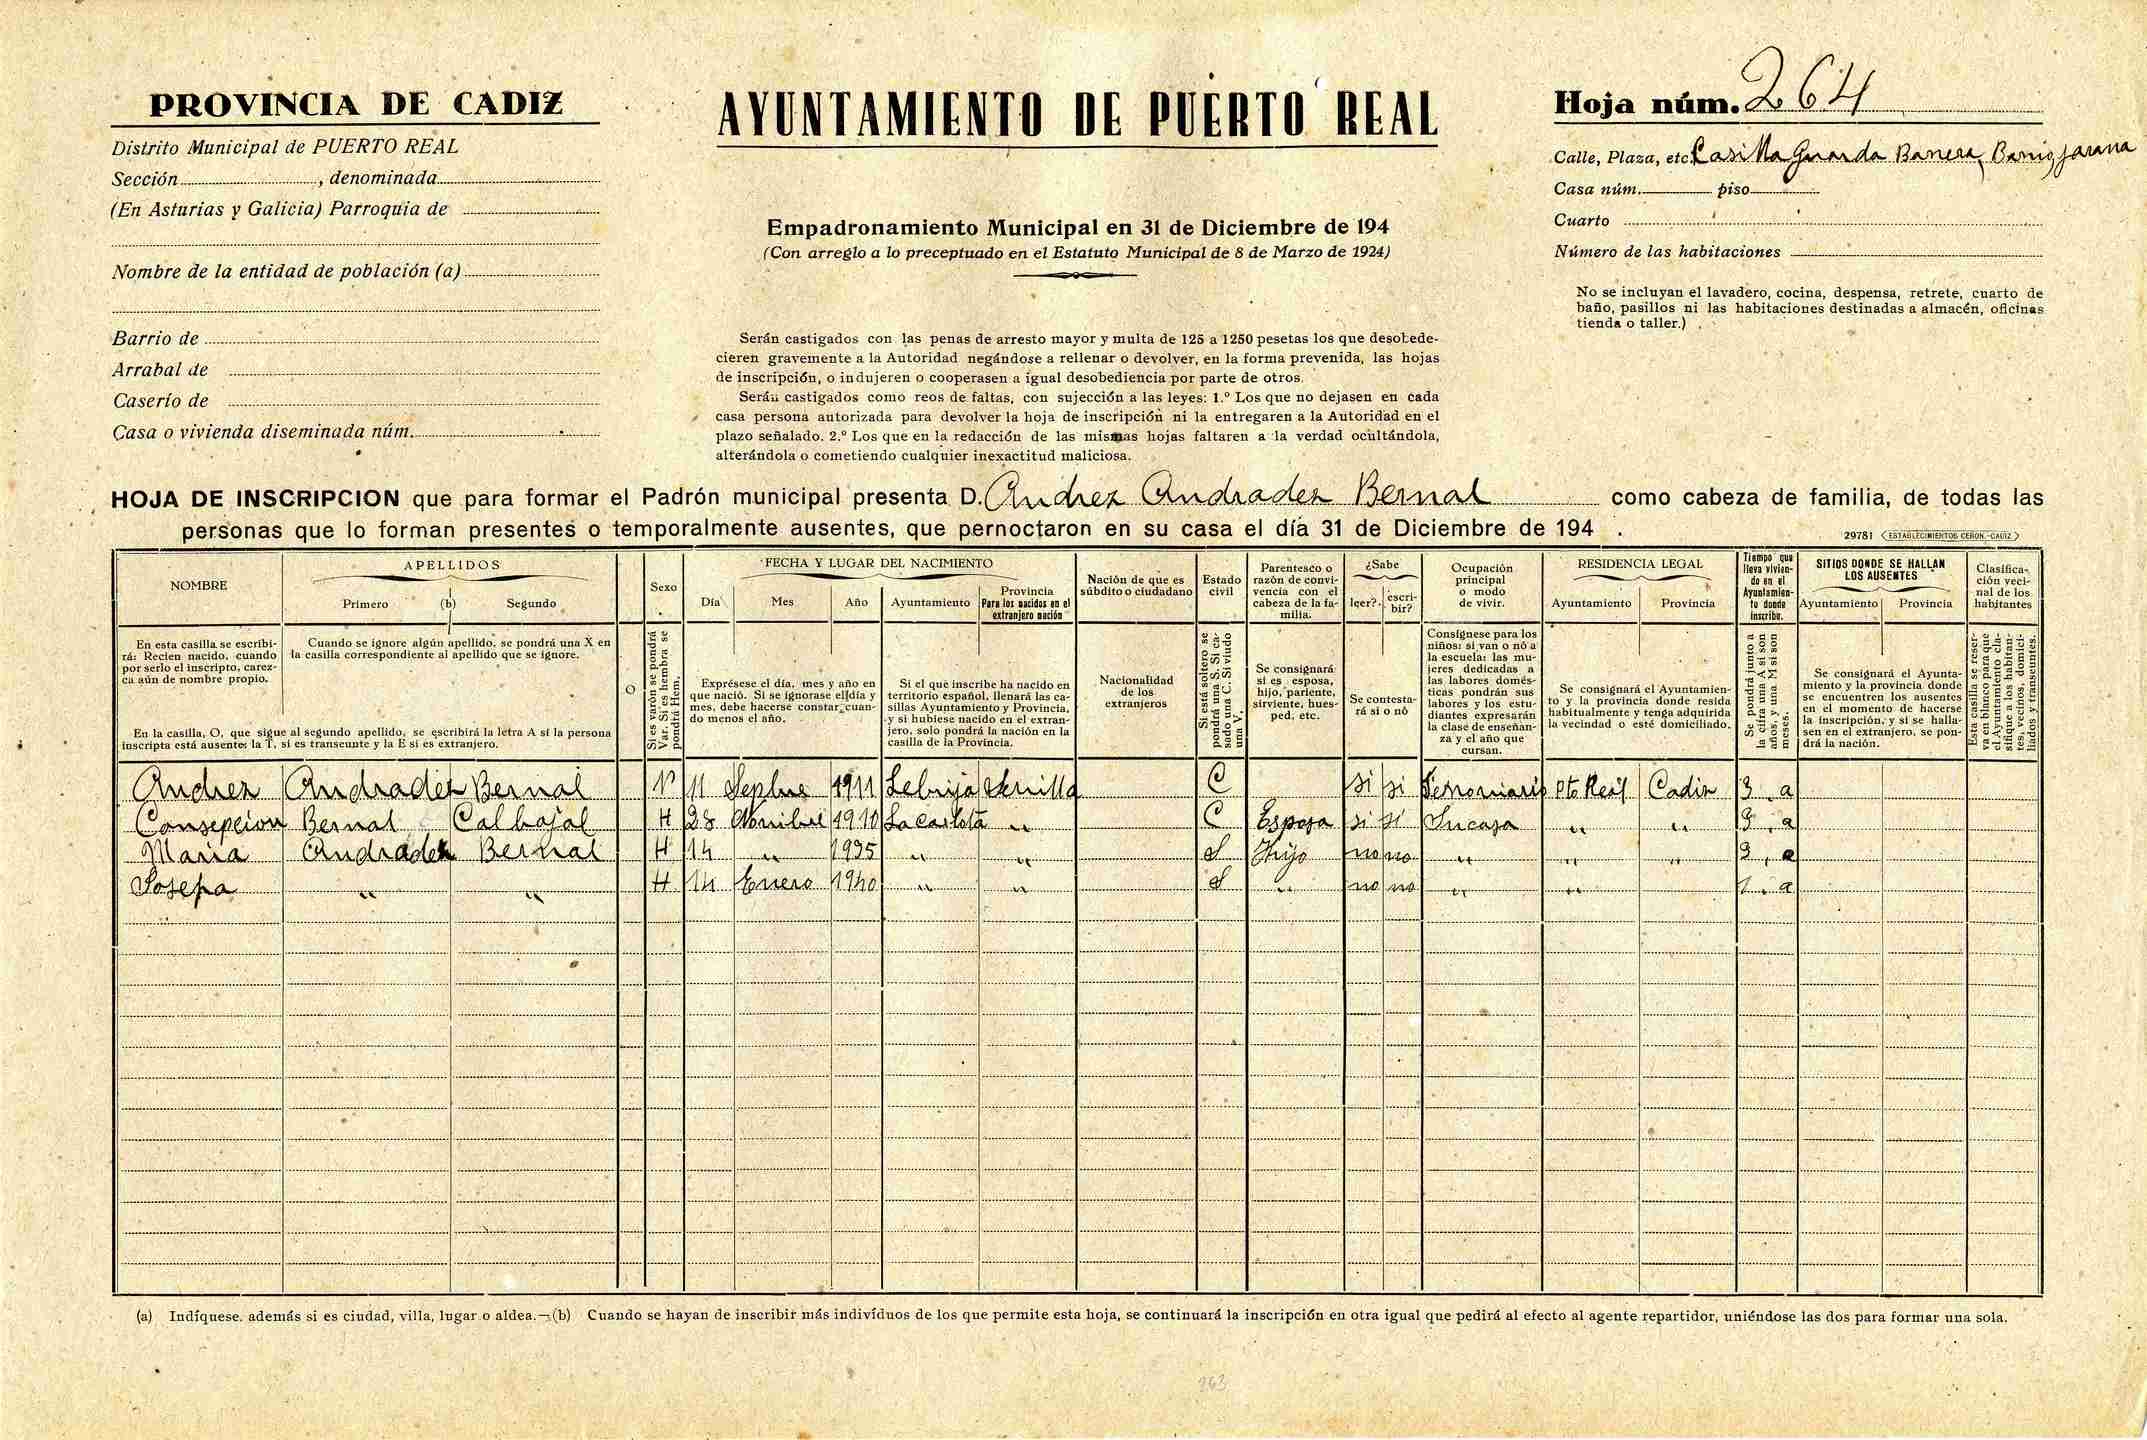 PROVINCIA DE CADIZ
Distrito Municipal de PUERTO REAL
Sección , denominada
(En Asturias y Galicia) Parroquia de
Nombre de la entidad de población (a)
Barrio de
Arrabal de
Caserío de
Casa o vivienda diseminada núm.
AYUNTAMIENTO DE PUERTO REAL
Empadronamiento Municipal en 31 de Diciembre de 194
(Con arreglo a lo preceptuado en el Estatuto Municipal de 8 de Marzo de 1924)
Serán castigados con las penas de arresto mayor y multa de 125 a 1250 pesetas los que desobede-
cieren gravemente a la Autoridad negándose a rellenar o devolver, en la forma prevenida, las hojas
de inscripción, o indujeren o cooperasen a igual desobediencia por parte de otros.
Serán castigados como reos de faltas, con sujección a las leyes: 1.º Los que no dejasen en cada
casa persona autorizada para devolver la hoja de inscripción ni la entregaren a la Autoridad en el
plazo señalado. 2.º Los que en la redacción de las mismas hojas faltaren a la verdad ocultándola,
alterándola o cometiendo cualquier inexactitud maliciosa.
Hoja núm. 264
Calle, Plaza, etc. Casilla Guarda Barrera, Barrio Jarana
Casa núm. piso
Cuarto
Número de las habitaciones
No se incluyan el lavadero, cocina, despensa, retrete, cuarto de
baño, pasillos ni las habitaciones destinadas a almacén, oficinas
tienda o taller.)
HOJA DE INSCRIPCION que para formar el Padrón municipal presenta D. Andrez Andradez Bernal como cabeza de familia, de todas las
personas que lo forman presentes o temporalmente ausentes, que pernoctaron en su casa el día 31 de Diciembre de 194 .
29781 ESTABLECIMIENTOS CERON.-CADIZ
NOMBRE
En esta casilla se escribi-
rá: Recien nacido, cuando
por serlo el inscripto, carez-
ca aún de nombre propio.
APELLIDOS
Primero (b) Segundo
Cuando se ignore algún apellido, se pondrá una X en
la casilla correspondiente al apellido que se ignore.
En la casilla, O, que sigue al segundo apellido, se escribirá la letra A si la persona
inscripta está ausente: la T, si es transeunte y la E si es extranjero.
O
Sexo
Si es varón se pondrá
Var. Si es hembra se
pondrá Hem.
FECHA Y LUGAR DEL NACIMIENTO
Día Mes Año Ayuntamiento
Provincia
Para los nacidos en el
extranjero nación
Expresese el día, mes y año en
que nació. Si se ignorase el día y
mes, debe hacerse constar cuan-
do menos el año.
Si el que inscribe ha nacido en
territorio español, llenará las ca-
sillas Ayuntamiento y Provincia,
y si hubiese nacido en el extran-
jero, solo pondrá la nación en la
casilla de la Provincia.
Nación de que es
súbdito o ciudadano
Nacionalidad
de los
extranjeros
Estado
civil
Si está soltero se
pondrá una S. Si ca-
sado una C. Si viudo
una V.
Parentesco o
razón de convi-
vencia con el
cabeza de la fa-
milia.
Se consignará
si es esposa,
hijo, pariente,
sirviente, hues-
ped, etc.
¿Sabe
leer? escri-
bir?
Se contesta-
rá si o nó
Ocupación
principal
o modo
de vivir.
Consígnese para los
niños: si van o nó a
la escuela: las mu-
jeres dedicadas a
las labores domés-
ticas pondrán sus
labores y los estu-
diantes expresarán
la clase de enseñan-
za y el año que
cursan.
RESIDENCIA LEGAL
Ayuntamiento Provincia
Se consignará el Ayuntamien-
to y la provincia donde resida
habitualmente y tenga adquirida
la vecindad o esté domiciliado.
Tiempo que
lleva vivien-
do en el
Ayuntamien-
to donde
inscribe.
Se pondrá junto a
la cifra una A si son
años, y una M si son
meses.
SITIOS DONDE SE HALLAN
LOS AUSENTES
Ayuntamiento Provincia
Se consignará el Ayunta-
miento y la provincia donde
se encuentren los ausentes
en el momento de hacerse
la inscripción, y si se halla-
sen en el extranjero, se pon-
drá la nación.
Clasifica-
ción veci-
nal de los
habitantes
Esta casilla se reser-
va en blanco para que
el Ayuntamiento cla-
sifique a los habitan-
tes, vecinos, domici-
liados y transeuntes.
Andrez Andradez Bernal V 11 Sepbre 1911 Lebrija Sevilla C si si Ferroviario Pto Real Cadiz 3 a
Consepcion Bernal Calbajal H 28 Novibre 1910 La carlota " C Esposa si si Sucasa " " 3, a
Maria Andradez Bernal H 14 " 1935 " " S Hijo no no " " " 3, a
Josefa " " H 14 Enero 1940 " " S " no no " " 1, a
(a) Indíquese, además si es ciudad, villa, lugar o aldea.—(b) Cuando se hayan de inscribir más indivíduos de los que permite esta hoja, se continuará la inscripción en otra igual que pedirá al efecto al agente repartidor, uniéndose las dos para formar una sola.
263